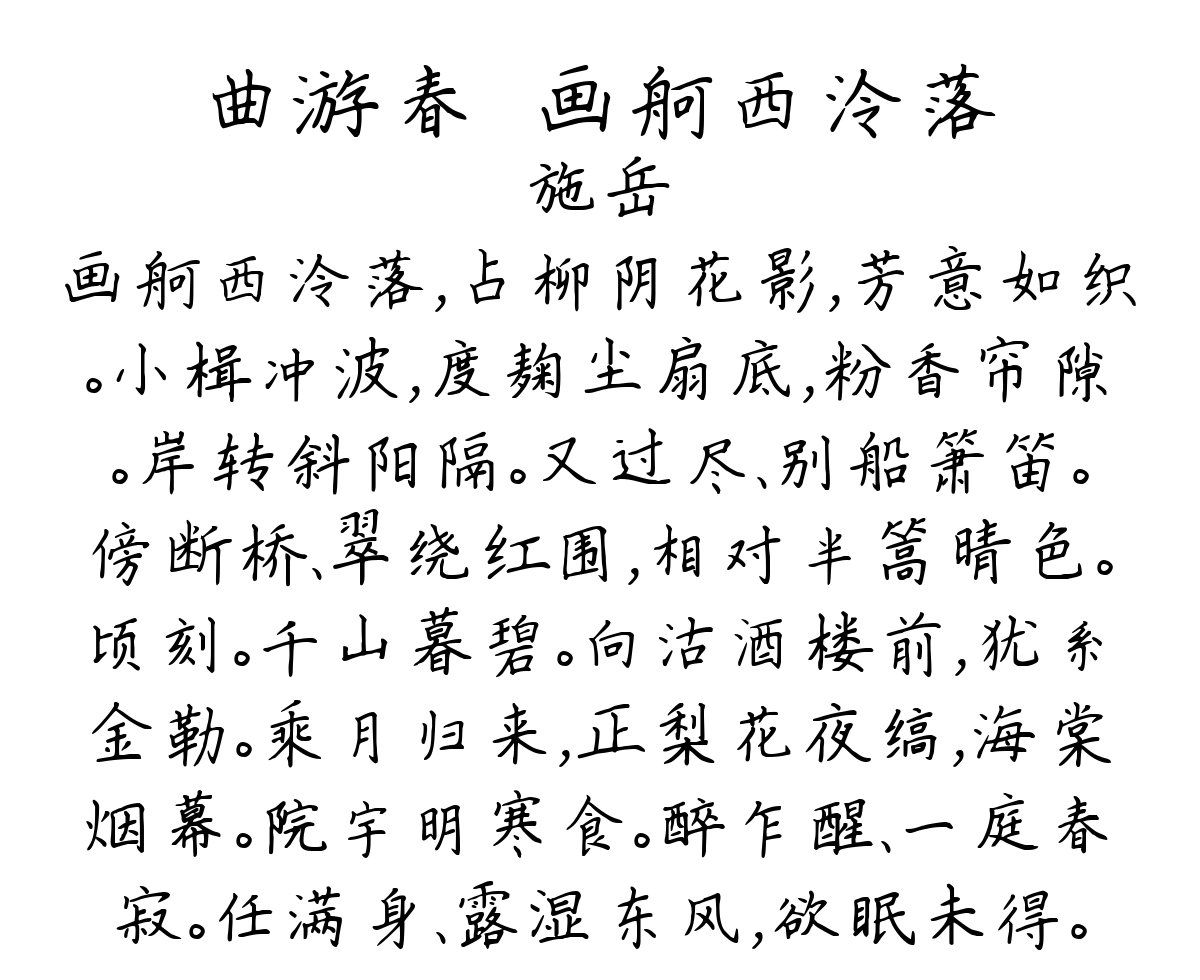 曲游春 画舸西泠落
施岳
画舸西泠落,占柳阴花影,芳意如织
。小楫冲波,度麹尘扇底,粉香帘隙
。岸转斜阳隔。又过尽、别船箫笛。
傍断桥、翠绕红围,相对半篙晴色。
顷刻。千山暮碧。向沽酒楼前,犹系
金勒。乘月归来,正梨花夜缟,海棠
烟幕。院宇明寒食。醉乍醒、一庭春
寂。任满身、露湿东风,欲眠未得。